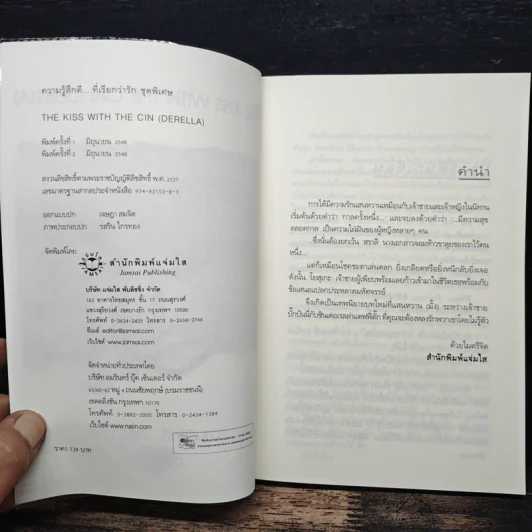 ความรู้สึกดี... ที่เรียกว่ารัก ชุดพิเศษ
THE KISS WITH THE CIN (DERELLA)
พิมพ์ครั้งที่ 1 มิถุนายน 2548
พิมพ์ครั้งที่ 2 มิถุนายน 2548
สงวนลิขสิทธิ์ตามพระราชบัญญัติลิขสิทธิ์ พ.ศ. 2537
เลขมาตรฐานสากลประจำหนังสือ 974-93153-8-5
ออกแบบปก เจษฎา สมจิต
ภาพประกอบปก รสริน ไกรทอง
จัดพิมพ์โดย
สำนักพิมพ์แจ่มใส
Jamsai Publishing
บริษัท แจ่มใส พับลิชชิ่ง จำกัด
163 อาคารไทยสมุทร ชั้น 17 ถนนสุรวงศ์
แขวงสุริยวงศ์ เขตบางรัก กรุงเทพฯ
โทรศัพท์ 0-2634-2425 โทรสาร 0-2634-2766
อีเมล์ editor@jamsai.com
เว็บไซต์ www.jamsai.com
จัดจำหน่ายทั่วประเทศโดย
บริษัท อมรินทร์ บุ๊ค เซ็นเตอร์ จำกัด
62/60-62 หมู่ 4 ถนนชัยพฤกษ์ (บรมราชชนนี)
เขตตลิ่งชัน กรุงเทพฯ 10170
โทรศัพท์ 0-2882-2000 โทรสาร 0-2434-1384
เว็บไซต์ www.naiin.com
ราคา 139 บาท
คำนำ
การได้มีความรักแสนหวานเหมือนกับเจ้าชายและเจ้าหญิงในนิทาน
เริ่มต้นด้วยคำว่า 'กาลครั้งหนึ่ง...' และจบลงด้วยคำว่า '...มีความสุข
ตลอดกาล' เป็นความใฝ่ฝันของผู้หญิงหลายๆ คน
...ซึ่งนั่นต้องยกเว้น สราลี นางเอกสาวจอมห้าวขาลุยของเราไว้คน
หนึ่ง...
แต่ก็เหมือนโชคชะตาเล่นตลก ยิ่งเกลียดหรือยิ่งหนีกลับยิ่งเจอ
ดังนั้น โยสุเกะ เจ้าชายผู้เพียบพร้อมเลยก้าวเข้ามาในชีวิตเธอพร้อมกับ
ข้อเสนอแปลกประหลาดมหัศจรรย์
จึงเกิดเป็นเทพนิยายบทใหม่ที่แสนหวาน (มั้ง) ระหว่างเจ้าชาย
ปั๊กปันนี่กับซินเดอเรลล่าแคฟฟี่ดั๊ก ที่คุณจะต้องหลงรักพวกเขาโดยไม่รู้ตัว
ด้วยไมตรีจิต
สำนักพิมพ์แจ่มใส